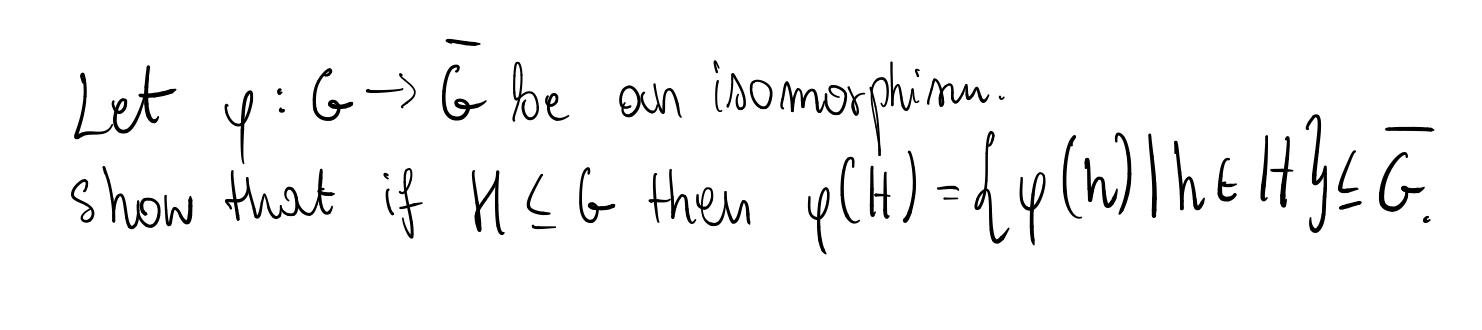 Let φ : G → G̅ be an isomorphism.
show that if H ≤ G then φ(H) = {φ(h) | h ∈ H} ≤ G̅.